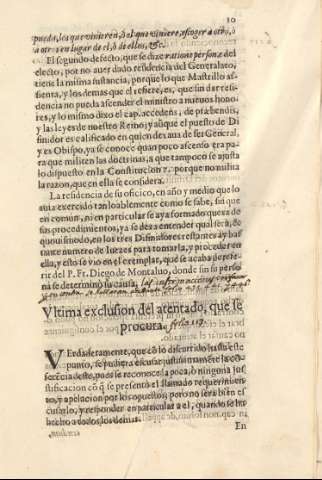 10
pueda, los que vinieren, ò el que viniere, escoger a otro, ò
a otros en lugar de el, ò de ellos, &c.
El segundo defecto, que se dize ratione personæ del
electo, por no auer dado residencia del Generalato,
tiene la misma sustancia, porque lo que Mastrillo as-
sienta, y los demas que el refiere, es, que sin dar resi-
dencia no pueda ascender el ministro a nueuos hono-
res, y lo mismo dixo el cap. accedens, de præbendis,
y las leyes de nuestro Reino; y assi que el puesto de Di
finidor es calificado en quien dexaua de ser General,
y es Obispo, ya se conoce quan poco ascenso era pa-
ra que militen las doctrinas, a que tampoco se ajusta
lo dispuesto en la Constitucion 7. porque no milita
la razon, que en ella se considera.
La residencia de su oficio, en año y medio que lo
auia exercido tan loablemente como se sabe, sin que
en comun, ni en particular se aya formado quexa de
sus procedimientos, ya se dexa entender qual será, de
quo ui sinodo, en los tres Difinidores restantes ay bas
tante numero de Iuezes para tomarla, y proceder en
ella, y esto se vio en el exemplar, que se acaba de refe-
rir del P. Fr. Diego de Montaluo, donde sin su perso
na se determinò su causa,
Vltima exclusion del atentado, que se
procura.
VErdaderamente, que cõ lo discurrido hasta este
punto, se pudiera escusar justissimamente la co-
secẽcia desto, pues se reconoce la poca, ò ninguna jus
tificacion cõ q̃ se presentò el llamado requerimien-
to, y apelacion por los opuestos, pero no serà bien es
cusarlo, y responder en particular a el, quando se ha
hecho a todos los demas.
En